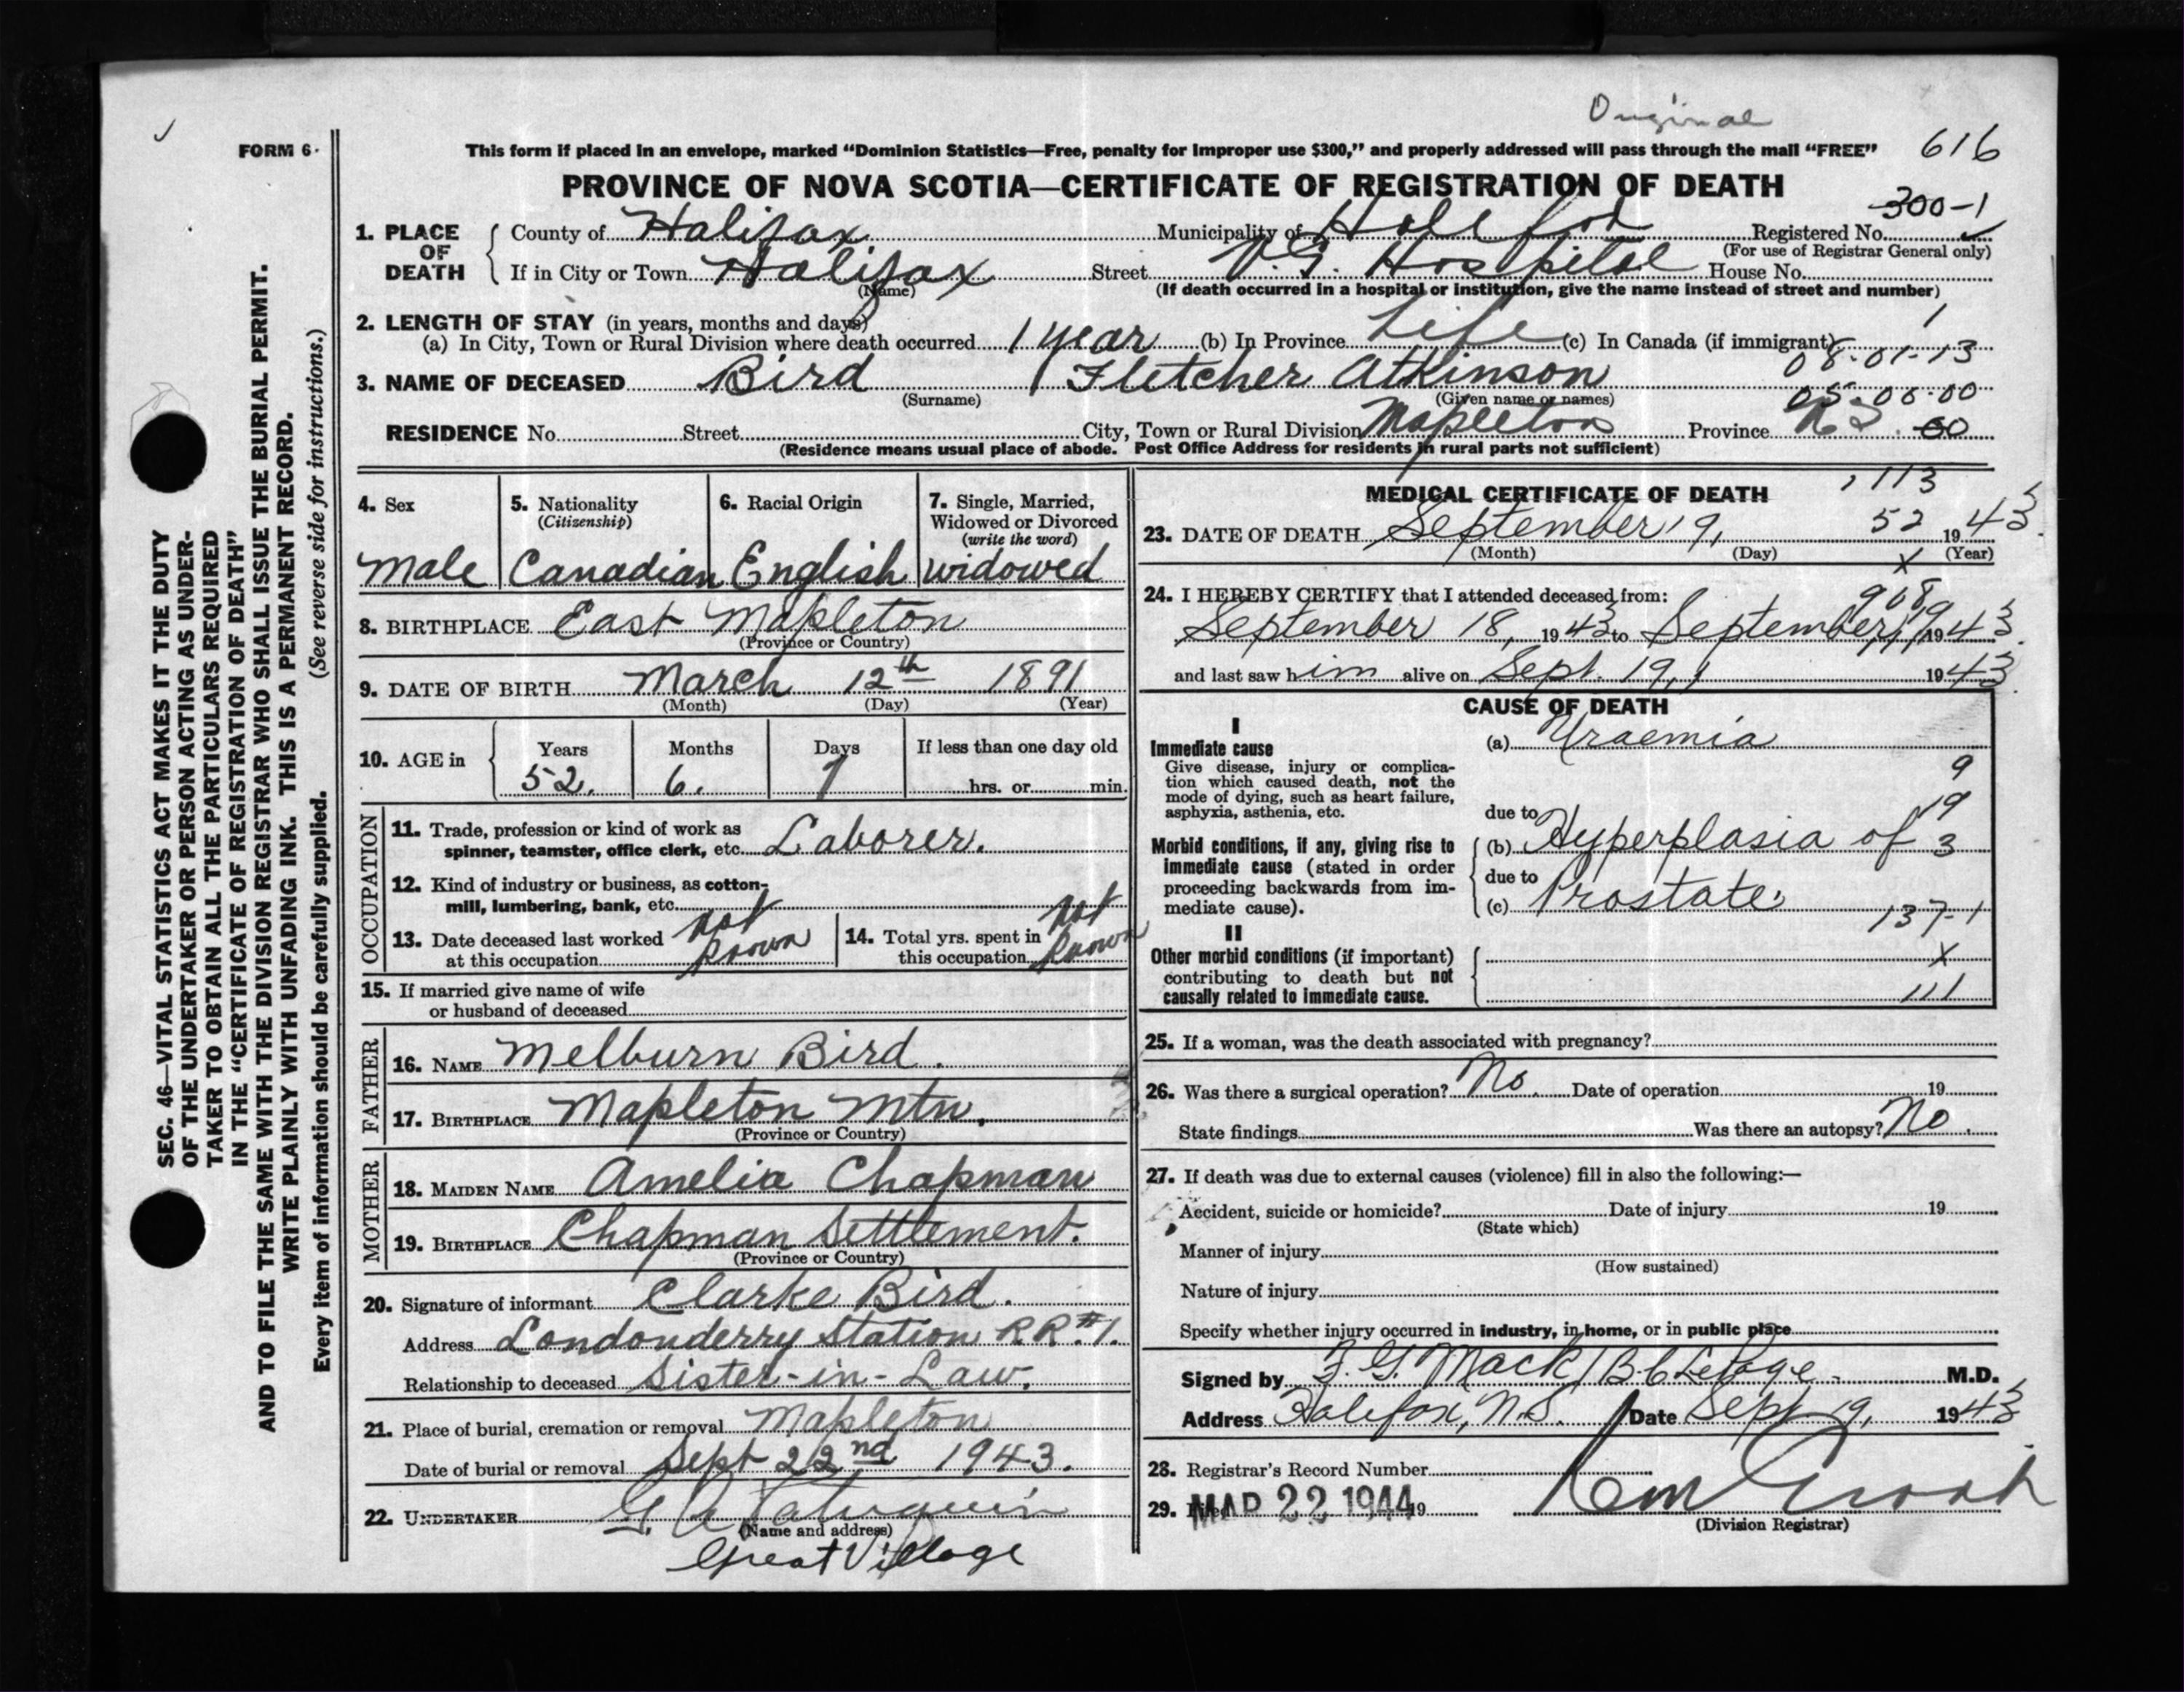 Original
FORM 6.
This form if placed in an envelope, marked “Dominion Statistics—Free, penalty for improper use $300,” and properly addressed will pass through the mail “FREE” 616
PROVINCE OF NOVA SCOTIA—CERTIFICATE OF REGISTRATION OF DEATH
300-1
1. PLACE OF DEATH County of Halifax Municipality of Halifax Registered No.
(For use of Registrar General only)
If in City or Town Halifax Street V.G. Hospital House No.
(Name) (If death occurred in a hospital or institution, give the name instead of street and number)
2. LENGTH OF STAY (in years, months and days)
(a) In City, Town or Rural Division where death occurred 1 year (b) In Province Life (c) In Canada (if immigrant) 1
08-01-13
3. NAME OF DECEASED Bird Fletcher Atkinson
(Surname) (Given name or names) 05-06-00
RESIDENCE No. Street City, Town or Rural Division Mapleton Province N.S. 60
(Residence means usual place of abode. Post Office Address for residents in rural parts not sufficient)
4. Sex
Male
5. Nationality
(Citizenship)
Canadian
6. Racial Origin
English
7. Single, Married,
Widowed or Divorced
(write the word)
widowed
8. BIRTHPLACE East Mapleton
(Province or Country)
9. DATE OF BIRTH March 12th 1891
(Month) (Day) (Year)
10. AGE in Years Months Days If less than one day old
52. 6. 7 hrs. or min.
OCCUPATION
11. Trade, profession or kind of work as
spinner, teamster, office clerk, etc. Laborer.
12. Kind of industry or business, as cotton-
mill, lumbering, bank, etc.
13. Date deceased last worked
at this occupation not known
14. Total yrs. spent in
this occupation not known
15. If married give name of wife
or husband of deceased
FATHER
16. NAME Melburn Bird.
17. BIRTHPLACE Mapleton Mtn.
(Province or Country)
MOTHER
18. MAIDEN NAME Amelia Chapman
19. BIRTHPLACE Chapman Settlement.
(Province or Country)
20. Signature of informant Clarke Bird.
Address Londonderry Station RR#1.
Relationship to deceased Sister-in-Law.
21. Place of burial, cremation or removal Mapleton
Date of burial or removal Sept 22nd 1943.
22. UNDERTAKER G.
(Name and address)
Great Village
MEDICAL CERTIFICATE OF DEATH 113
23. DATE OF DEATH September 19, 52 1943
(Month) (Day) x (Year)
24. I HEREBY CERTIFY that I attended deceased from: 908
September 18, 1943 to September 19 1943
and last saw him alive on Sept. 19, 1943
CAUSE OF DEATH
I
Immediate cause
Give disease, injury or complica-
tion which caused death, not the
mode of dying, such as heart failure,
asphyxia, asthenia, etc.
(a) Uraemia
9
19
due to
Morbid conditions, if any, giving rise to
immediate cause (stated in order
proceeding backwards from im-
mediate cause).
(b) Hyperplasia of 3
due to
(c) Prostate.
137-1
II
Other morbid conditions (if important)
contributing to death but not
causally related to immediate cause.
x
111
25. If a woman, was the death associated with pregnancy?
26. Was there a surgical operation? No. Date of operation 19
State findings Was there an autopsy? No.
27. If death was due to external causes (violence) fill in also the following:—
Accident, suicide or homicide? Date of injury 19
(State which)
Manner of injury
(How sustained)
Nature of injury
Specify whether injury occurred in industry, in home, or in public place
Signed by F. G. Mack / B C LePage M.D.
Address Halifax, N.S. Date Sept 19, 1943
28. Registrar's Record Number
29. Filed MAR 22 1944 19
(Division Registrar)
SEC. 46—VITAL STATISTICS ACT MAKES IT THE DUTY
OF THE UNDERTAKER OR PERSON ACTING AS UNDER-
TAKER TO OBTAIN ALL THE PARTICULARS REQUIRED
IN THE “CERTIFICATE OF REGISTRATION OF DEATH”
AND TO FILE THE SAME WITH THE DIVISION REGISTRAR WHO SHALL ISSUE THE BURIAL PERMIT.
WRITE PLAINLY WITH UNFADING INK. THIS IS A PERMANENT RECORD.
Every item of information should be carefully supplied. (See reverse side for instructions.)